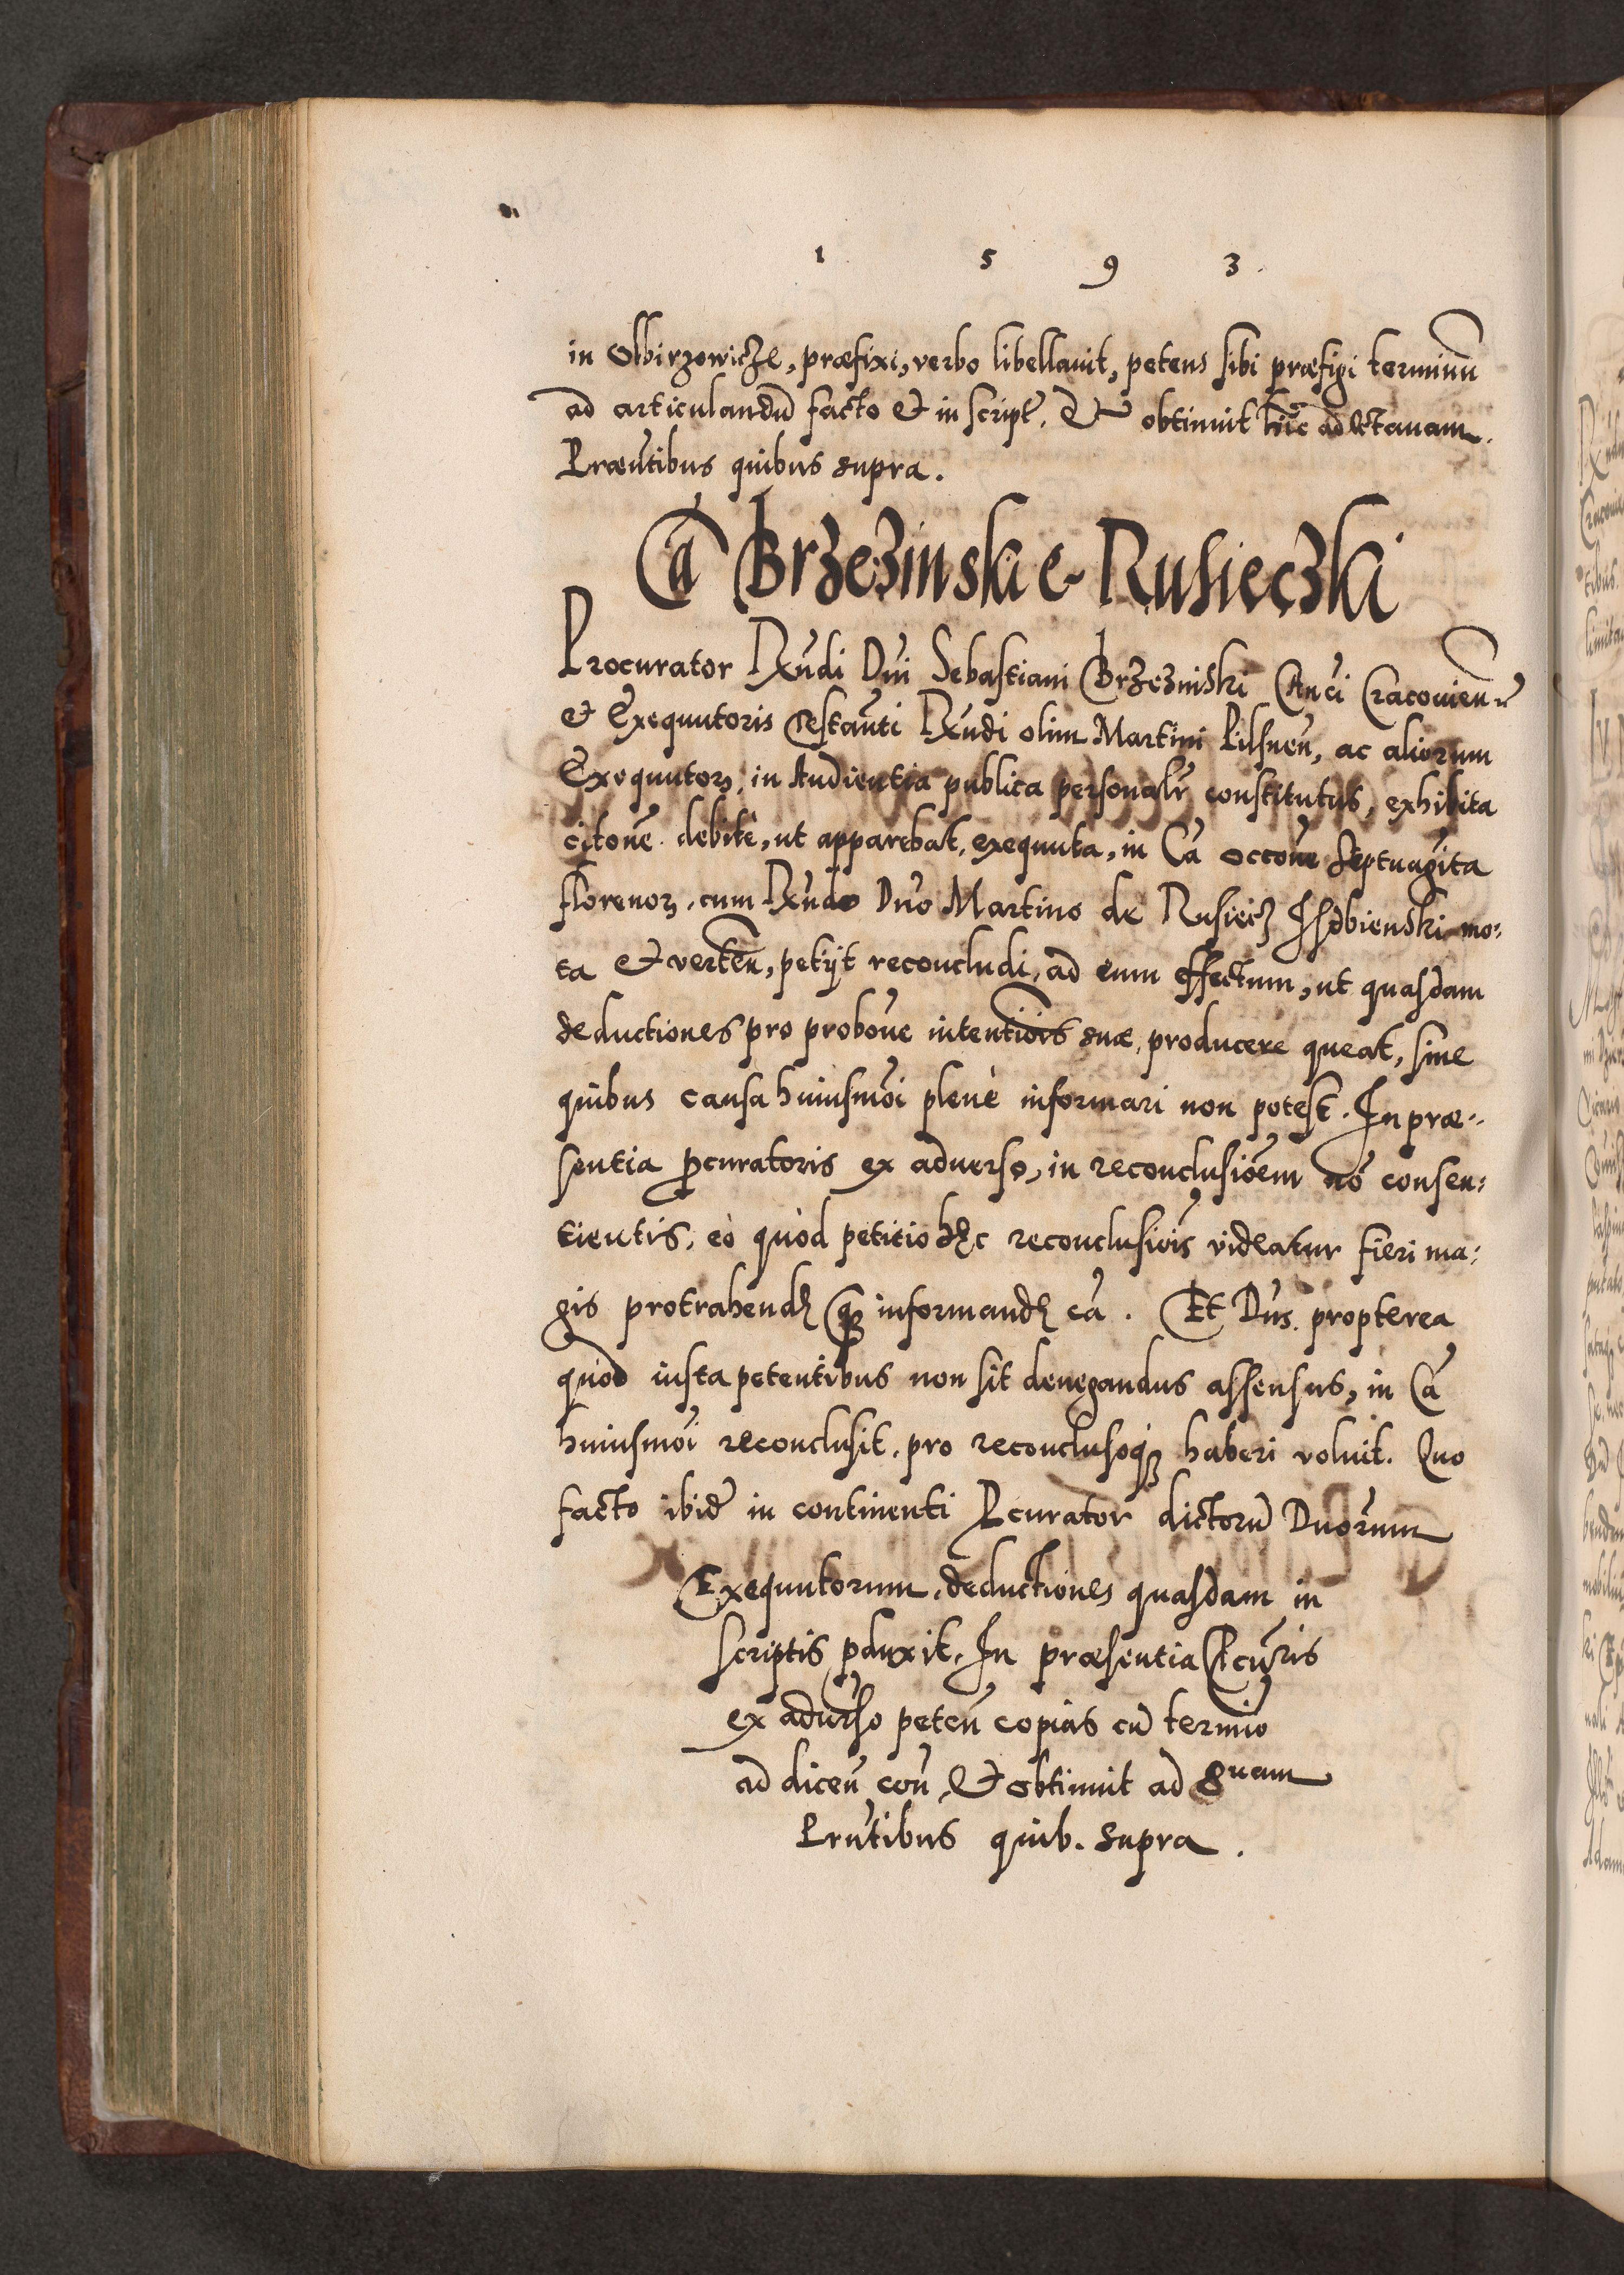 1 5 9 3.
in Olbirzowicze, præfixi, verbo libellauit, petens sibi præfigi terminū
ad articulandū facto et in script. Et obtinuit hūc ad octauam.
Præntibus quibus supra.
Ca Brzezinski e Rusieczki
Procurator Rndi Dni Sebastiani Brzezinski Cnci Cracouien
et Exequutoris Testanti Rndi olim Martini Pilsnen, ac aliorum
Exequutorꝫ, in Audientia publica personalr constitutus, exhibita
citone debite, ut apparebat, exequuta, in Ca occone septuaginta
florenorꝫ, cum Rndo Dno Martino de Rusiecz Isdbienski mo:
ta et verten, petijt reconcludi, ad eum effectum, ut quasdam
deductiones pro probone intentiois suæ, producere queat, sine
quibus causa huiusmoi plenè informari non potest. In præ:
sentia pcuratoris ex aduerso, in reconclusioem nō consen:
tientis, eò quòd petitio hęc reconclusiois videatur fieri ma:
gis protrahendę quā informandę ca. Et Dns propterea
quòd iusta petentibus non sit denegandus assensus, in Ca
huiusmoi reconclusit, pro reconclusoqꝫ haberi voluit. Quo
facto ibid in continenti Pcurator dictorū Dnorum
Exequutorum, deductiones quasdam in
scriptis pduxit. In præsentia Pcuris
ex aduerso peten copias cū termio
ad dicen con, Et obtinuit ad 8uam
Prntibus quib. supra.